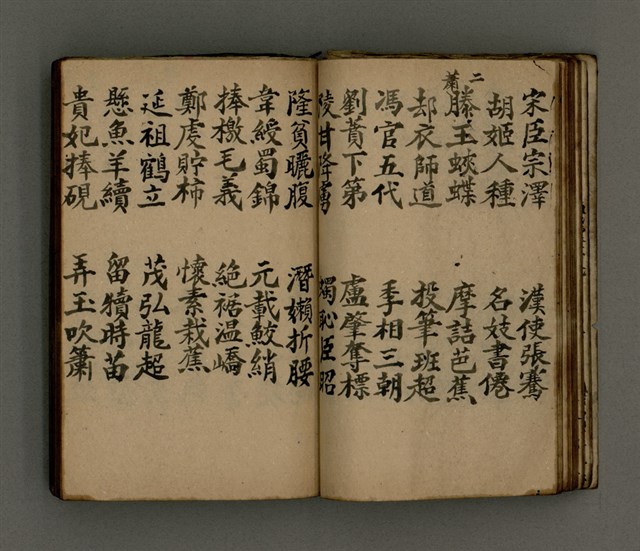 宋臣宗澤 漢使張騫
胡姬人種 名妓書僊
二蕭
滕王蛺蝶 摩詰芭蕉
却衣師道 投筆班超
馮官五代 季相三朝
劉蕡下第 盧肇奪標
陵甘降虜 蠋恥臣昭
隆貧曬腹 潛嬾折腰
韋綬蜀錦 元載鮫綃
捧檄毛義 絕裾温嶠
鄭虔貯柿 懷素栽蕉
延祖鶴立 茂弘龍超
懸魚羊續 留犢時苗
貴妃捧硯 弄玉吹簫